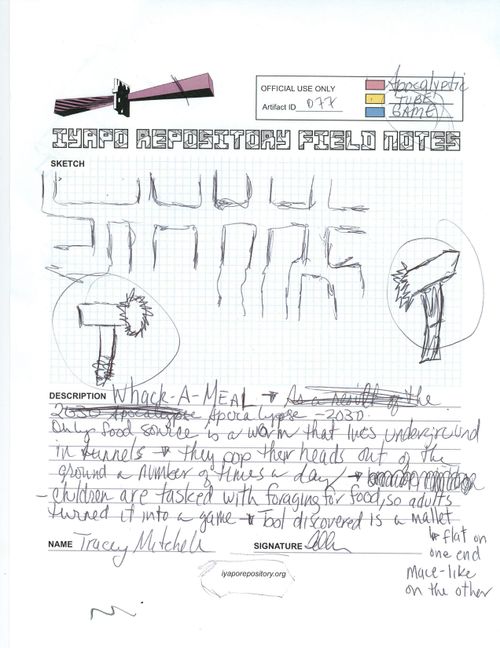 OFFICIAL USE ONLY
Artifact ID 077
Apocalyptic
TUBE
GAME
IYAPO REPOSITORY FIELD NOTES
SKETCH
DESCRIPTION Whack-A-MEAL → As a result of the
2030 Apocalypse Apocalypse - 2030.
Only food source is a worm that lives underground
in tunnels → they pop their heads out of the
ground a number of times a day →
- children are tasked with foraging for food, so adults
turned it into a game → Tool discovered is a mallet
↳ flat on
one end
mace-like
on the other
NAME Tracey Mitchell SIGNATURE
iyaporepository.org